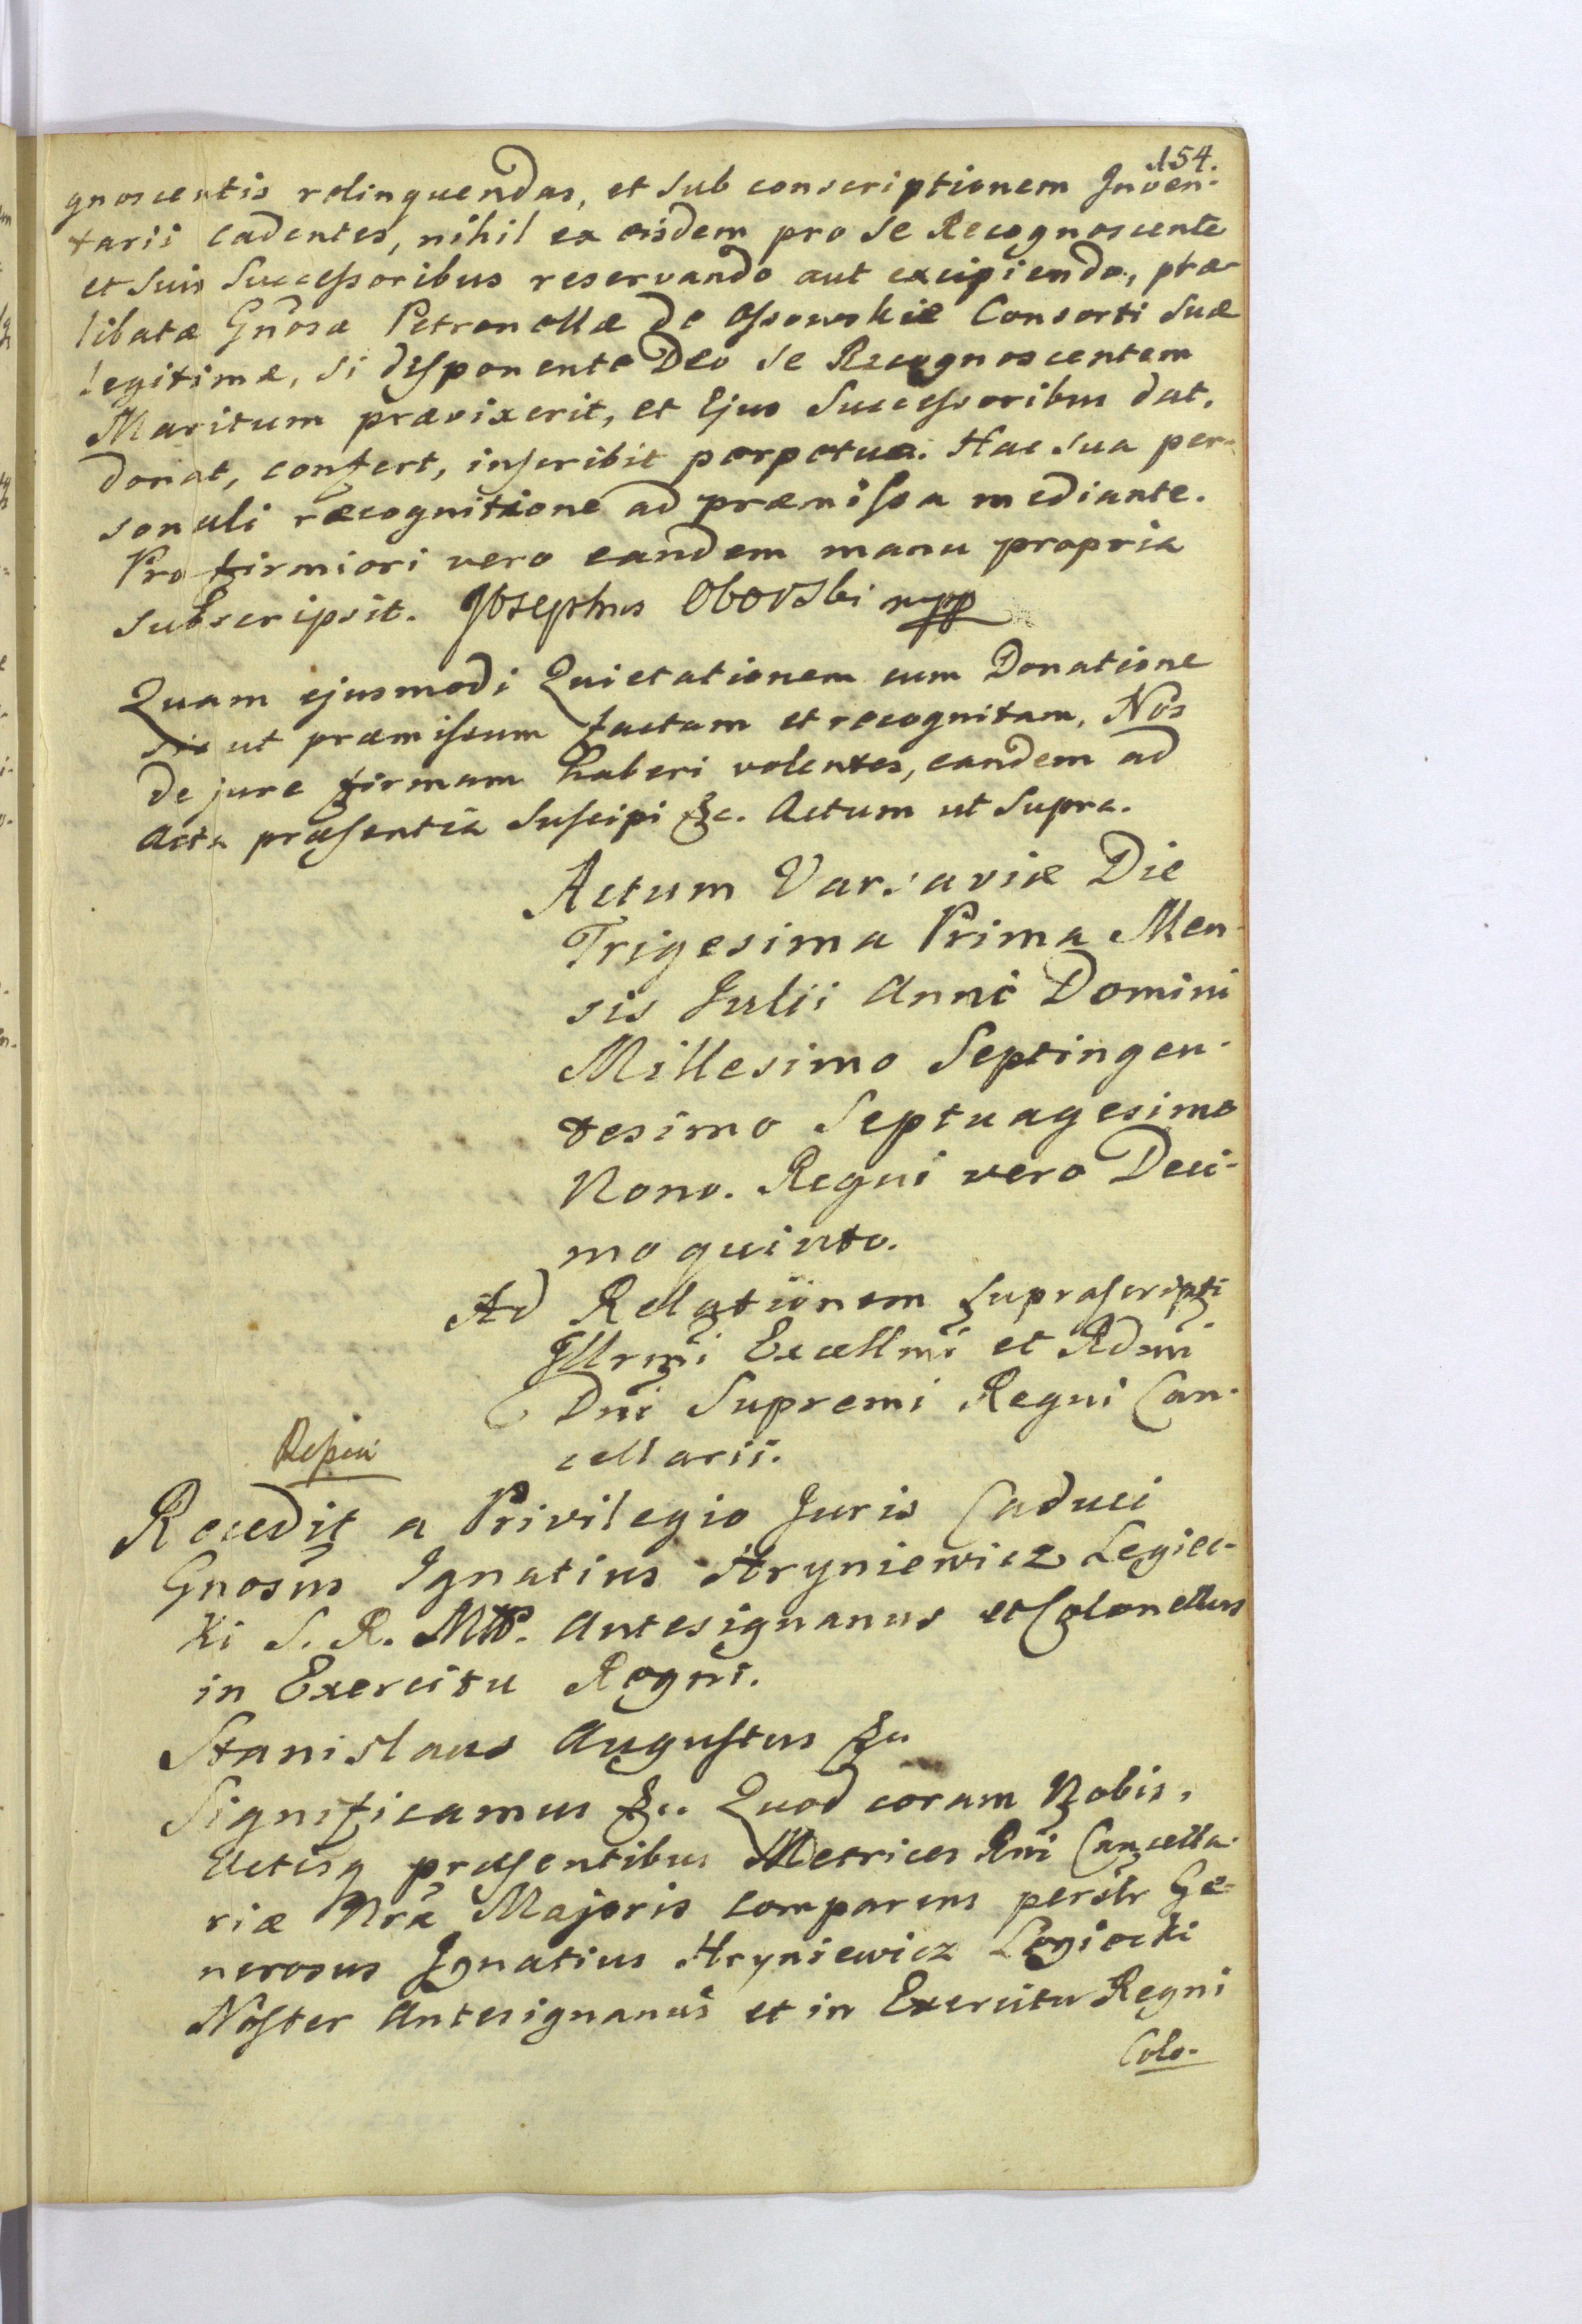 154.
gnoscentis relinquendas, et sub conscriptionem Inven-
tarii cadentes, nihil ex eisdem pro se Recognoscente
et suis Successoribus reservando aut excipiendo, præ-
libatæ Gnosæ Petronellæ de Ossowskie Consorti suæ
legitimæ, si disponente Deo se Recognoscentem
Maritum prævixerit, et Ejus Successoribus dat,
donat, confert, inscribit perpetue. Hac sua per-
sonali recognitione ad præmissa mediante.
Pro firmiori vero eandem manu propria
subscripsit. Josephus Oborski mpp
Quam ejusmodi Quietationem cum Donatione
sic ut præmissum factam et recognitam, Nos
de jure firmam haberi volentes, eandem ad
Acta præsentia suscipi &c. Actum ut supra.
Actum Varsaviæ Die
Trigesima Prima Men-
sis Julii Anni Domini
Millesimo Septingen-
tesimo Septuagesimo
Nono. Regni vero Deci-
mo quinto.
Ad Relationem suprascripti
Illrmi Excellmi et Rdmi
Dni Supremi Regni Can-
cellarii.
Recedit a Privilegio Juris Caduci
Gnosus Ignatius Hryniewicz Legiec-
ki S. R. Mtt. Antesignanus et Colonellus
in Exercitu Regni.
Stanislaus Augustus &c
Significamus &c. Quod coram Nobis,
Actisq præsentibus Metrices Rni Cancella-
riæ Nræ Majoris comparens persltr Ge-
nerosus Ignatius Hryniewicz Legiecki
Noster Antesignanus et in Exercitu Regni
Colo-